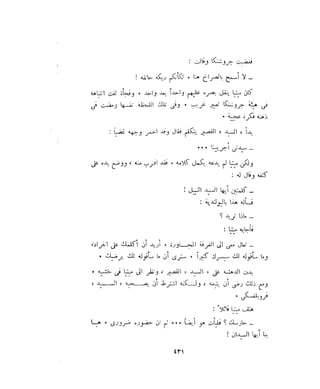 فغضبت جروشنكا وقالت :
ـ لا أسمح بالصراخ هنا ٠ لكأنكم ديكة حانقة !
كان ميتيا ينقل بصره عليهم واحداً بعد واحد ٠ وفجأة لفت انتباهه
فى هيئة جروشنكا تعبير غريب ٠ وفى تلك اللحظة نفسها ومضت فى
ذهنه فكرة عجيبة ٠
بدأ « السيد » القصير يتكلم فقال وقد احمر وجهه غضباً :
ـ سيدتى أجريبينا ٠٠٠
ولكن ميتيا لم يدعه يكمل كلامه ٠ فقد اقترب منه ، ووضع يده على
كتفه وقال له :
ـ كلمتين أيها السيد النبيل !
فسأله هذا بالبولندية :
ـ ماذا تريد ؟
فأجابه ميتيا :
ـ تعال معى الى الغرفة المجاورة ٠ أريد أن أكلمك على انفراد٠
وما سأقوله لك سيسرك كثيراً ٠ سترى أن ما سأقوله لك يرضيك ٠
بدت الدهشة على « السيد » القصير ، ونظر الى ميتيا فى خشية ٠
ومع ذلك رضى أن يتبعه ، ولكنه اشترط أن يصحبه « السيد »
فروبلفسكى ٠
هتف ميتيا قائلاً :
ـ حارسك ؟ فليأت هو أيضاً ٠٠٠ ثم ان حضوره ضرورى ٠ هيا
بنا أيها السيدان !
٤٣١